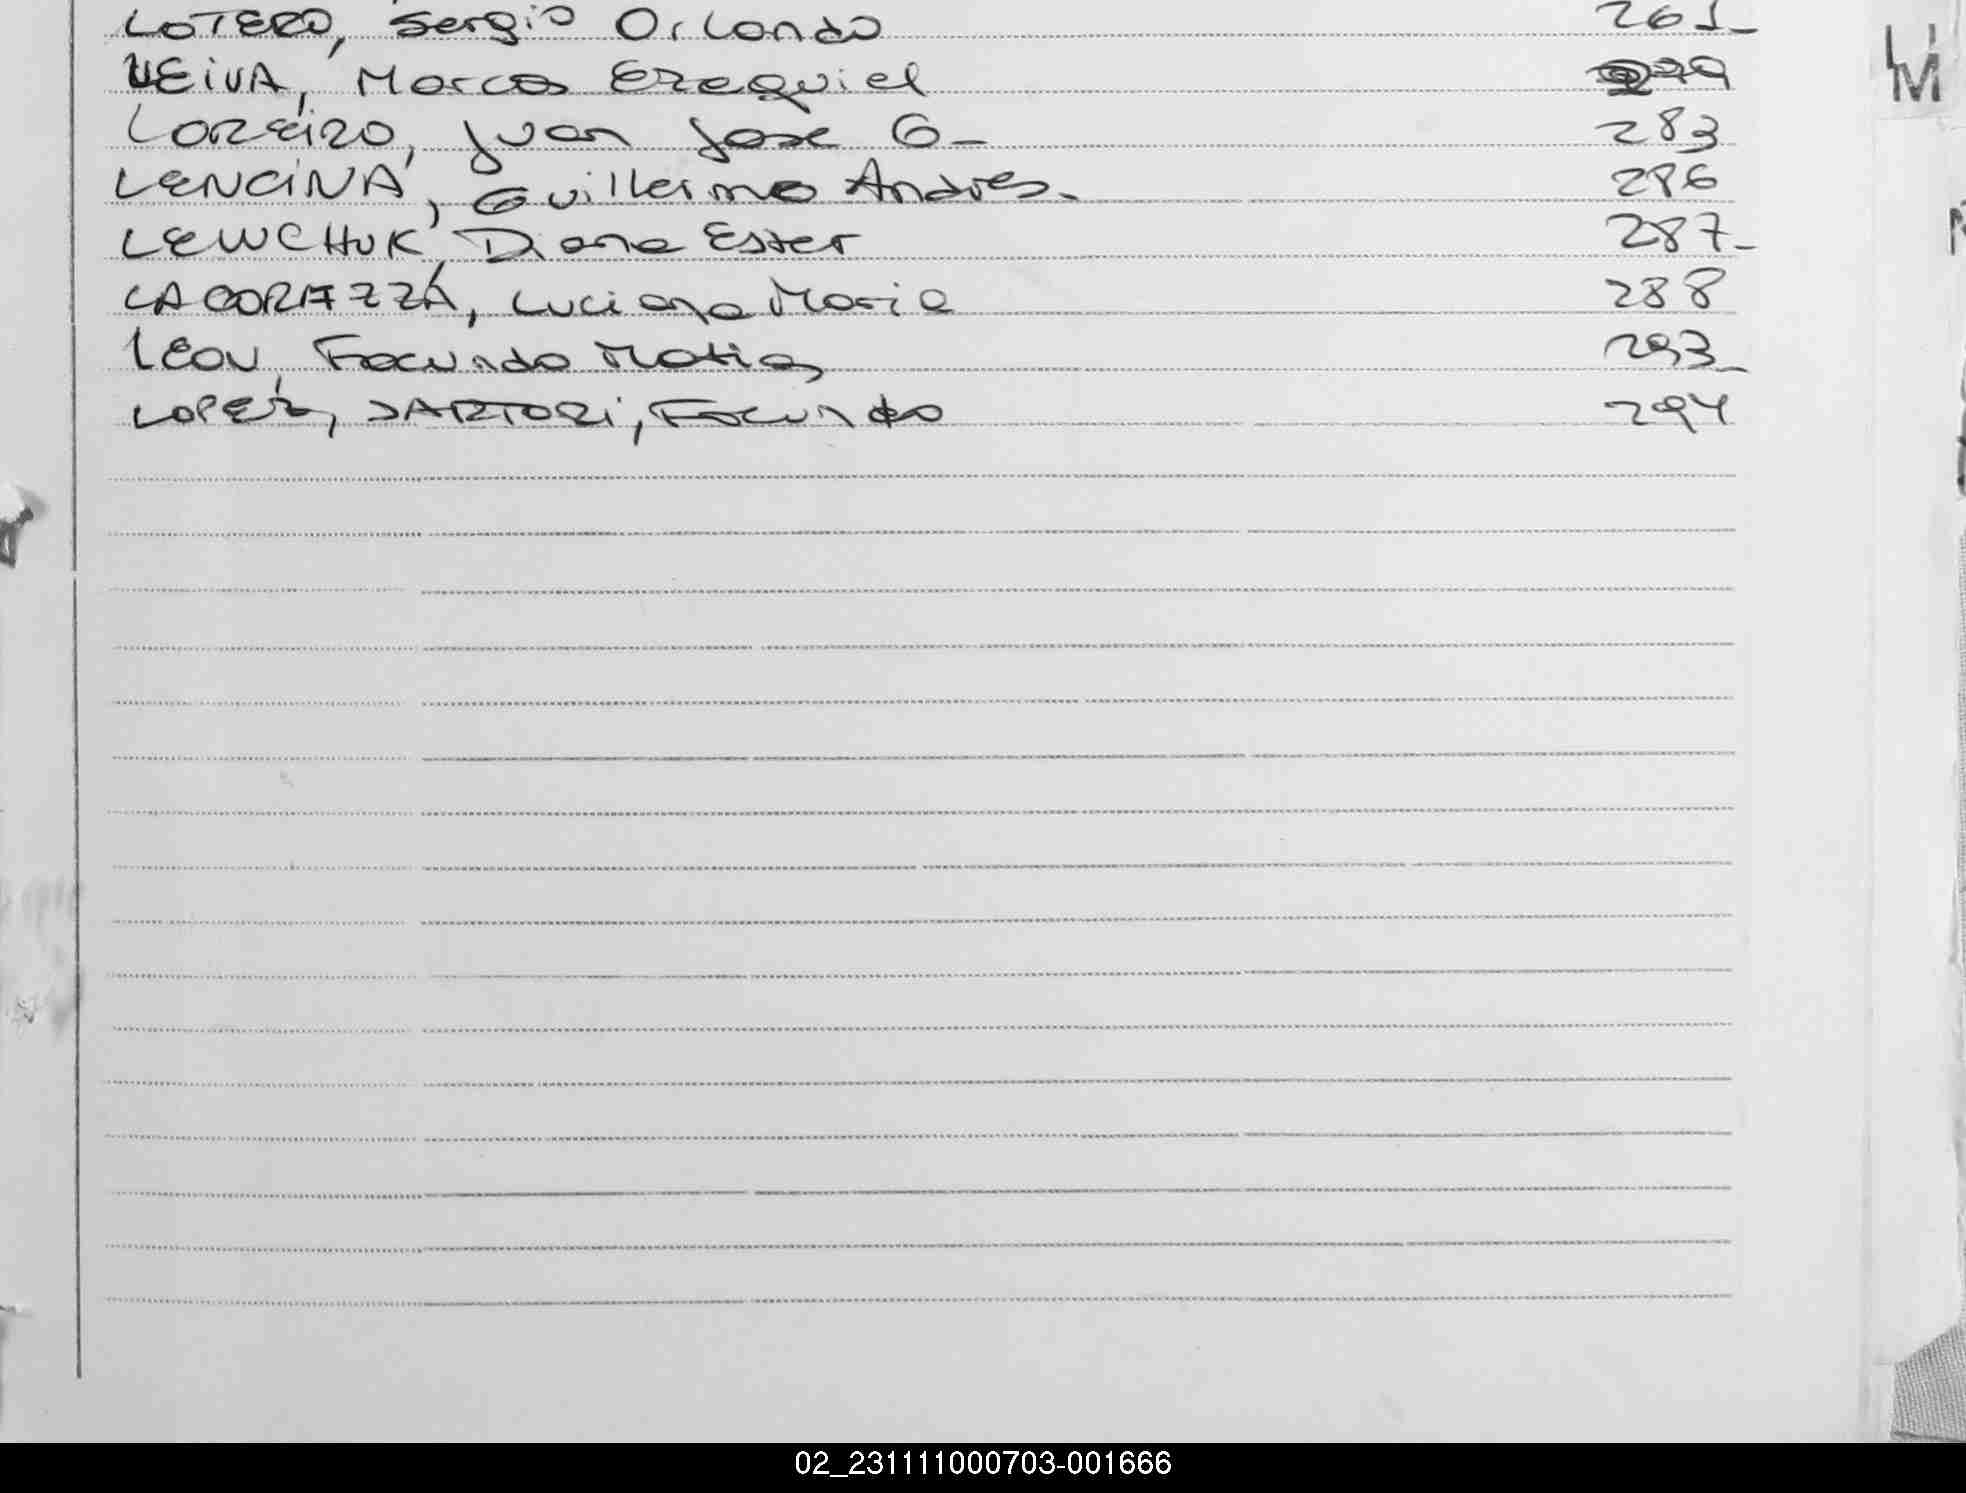 LOTERO, Sergio Orlando 261_
LEIVA, Marcos Ezequiel 279
LOREIRO, Juan Jose G_
283
LENCINA, Guillermo Andres_ 286
LEWCHUK, Diana Ester 287_
LACORAZZA, Luciana Maria 288
LEON, Facundo Matias 293_
LOPEZ, SARTORI, Facundo 294
L
M
02_231111000703-001666